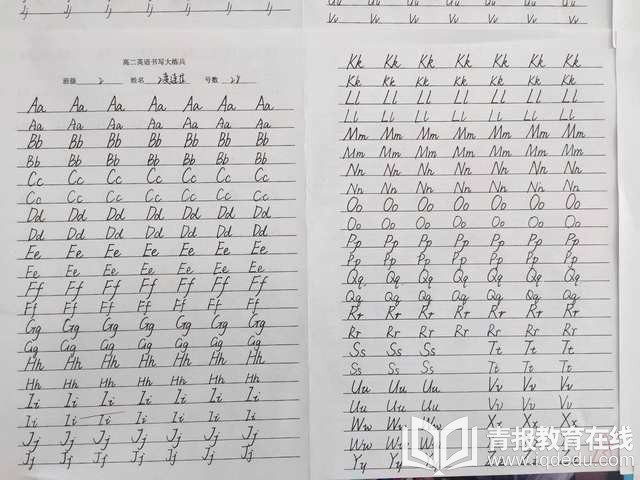 Jj Jj Jj Jj Jj Jj
Vv Vv Vv Vv Vv Vv
高二英语书写大练兵
班级 2 姓名 号数 28
Aa Aa Aa Aa Aa Aa Aa
Aa Aa Aa Aa Aa Aa Aa
Bb Bb Bb Bb Bb Bb Bb
Bb Bb Bb Bb Bb Bb Bb
Cc Cc Cc Cc Cc Cc Cc
Cc Cc Cc Cc Cc Cc Cc
Dd Dd Dd Dd Dd Dd Dd
Dd Dd Dd Dd Dd Dd Dd
Ee Ee Ee Ee Ee Ee Ee
Ee Ee Ee Ee Ee Ee Ee
Ff Ff Ff Ff Ff Ff Ff
Ff Ff Ff Ff Ff Ff Ff
Gg Gg Gg Gg Gg Gg Gg
Gg Gg Gg Gg Gg Gg Gg
Hh Hh Hh Hh Hh Hh Hh
Hh Hh Hh Hh Hh Hh Hh
Ii Ii Ii Ii Ii Ii Ii
Ii Ii Ii Ii Ii Ii Ii
Jj Jj Jj Jj Jj Jj Jj
Jj Jj Jj Jj Jj Jj Jj
Kk Kk Kk Kk Kk Kk Kk
Kk Kk Kk Kk Kk Kk Kk
Ll Ll Ll Ll Ll Ll Ll
Ll Ll Ll Ll Ll Ll Ll
Mm Mm Mm Mm Mm Mm Mm
Mm Mm Mm Mm Mm Mm Mm
Nn Nn Nn Nn Nn Nn Nn
Nn Nn Nn Nn Nn Nn Nn
Oo Oo Oo Oo Oo Oo Oo
Oo Oo Oo Oo Oo Oo Oo
Pp Pp Pp Pp Pp Pp Pp
Pp Pp Pp Pp Pp Pp Pp
Qq Qq Qq Qq Qq Qq Qq
Qq Qq Qq Qq Qq Qq Qq
Rr Rr Rr Rr Rr Rr Rr
Rr Rr Rr Rr Rr Rr Rr
Ss Ss Ss Tt Tt Tt
Ss Ss Ss Tt Tt Tt
Uu Uu Uu Vv Vv Vv
Uu Uu Uu Vv Vv Vv
Ww Ww Ww Xx Xx Xx
Ww Ww Ww
Yy Yy Yy Zz Zz Zz
青报教育在线
www.qdedu.com